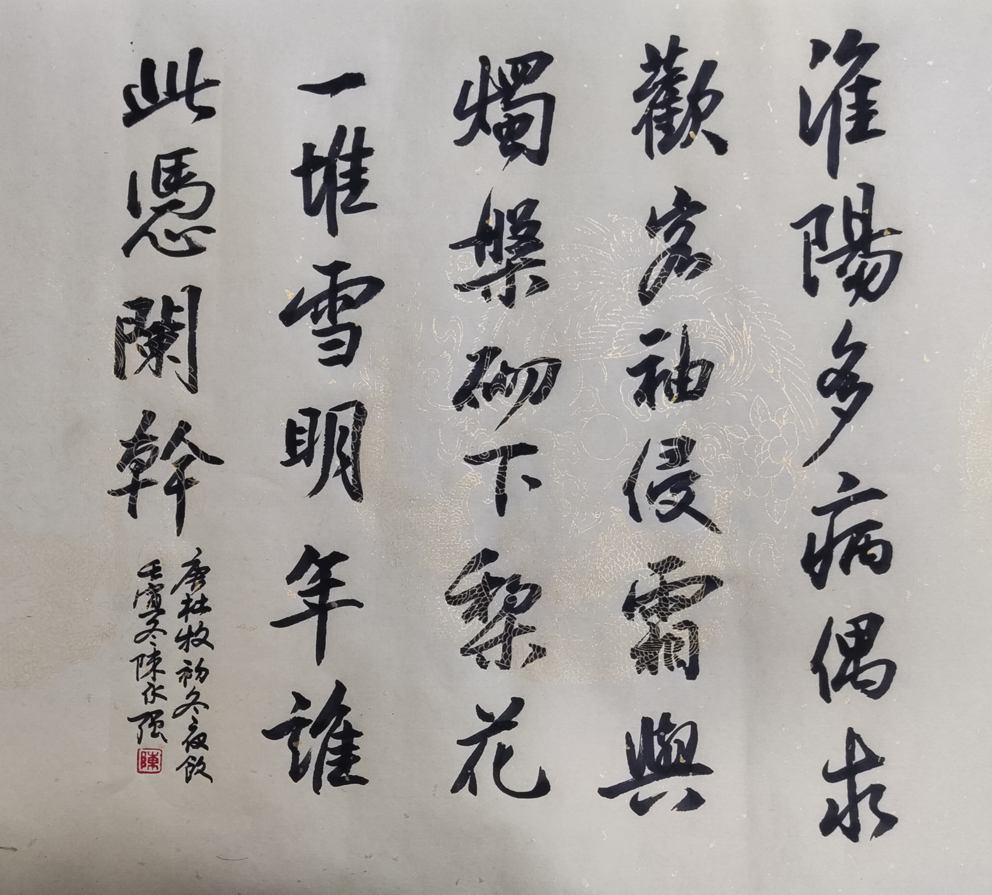 淮陽多病偶求
歡客袖侵霜與
燭槃砌下梨花
一堆雪明年誰
此憑闌幹
唐杜牧初冬夜飲
壬寅冬陳永强
陳